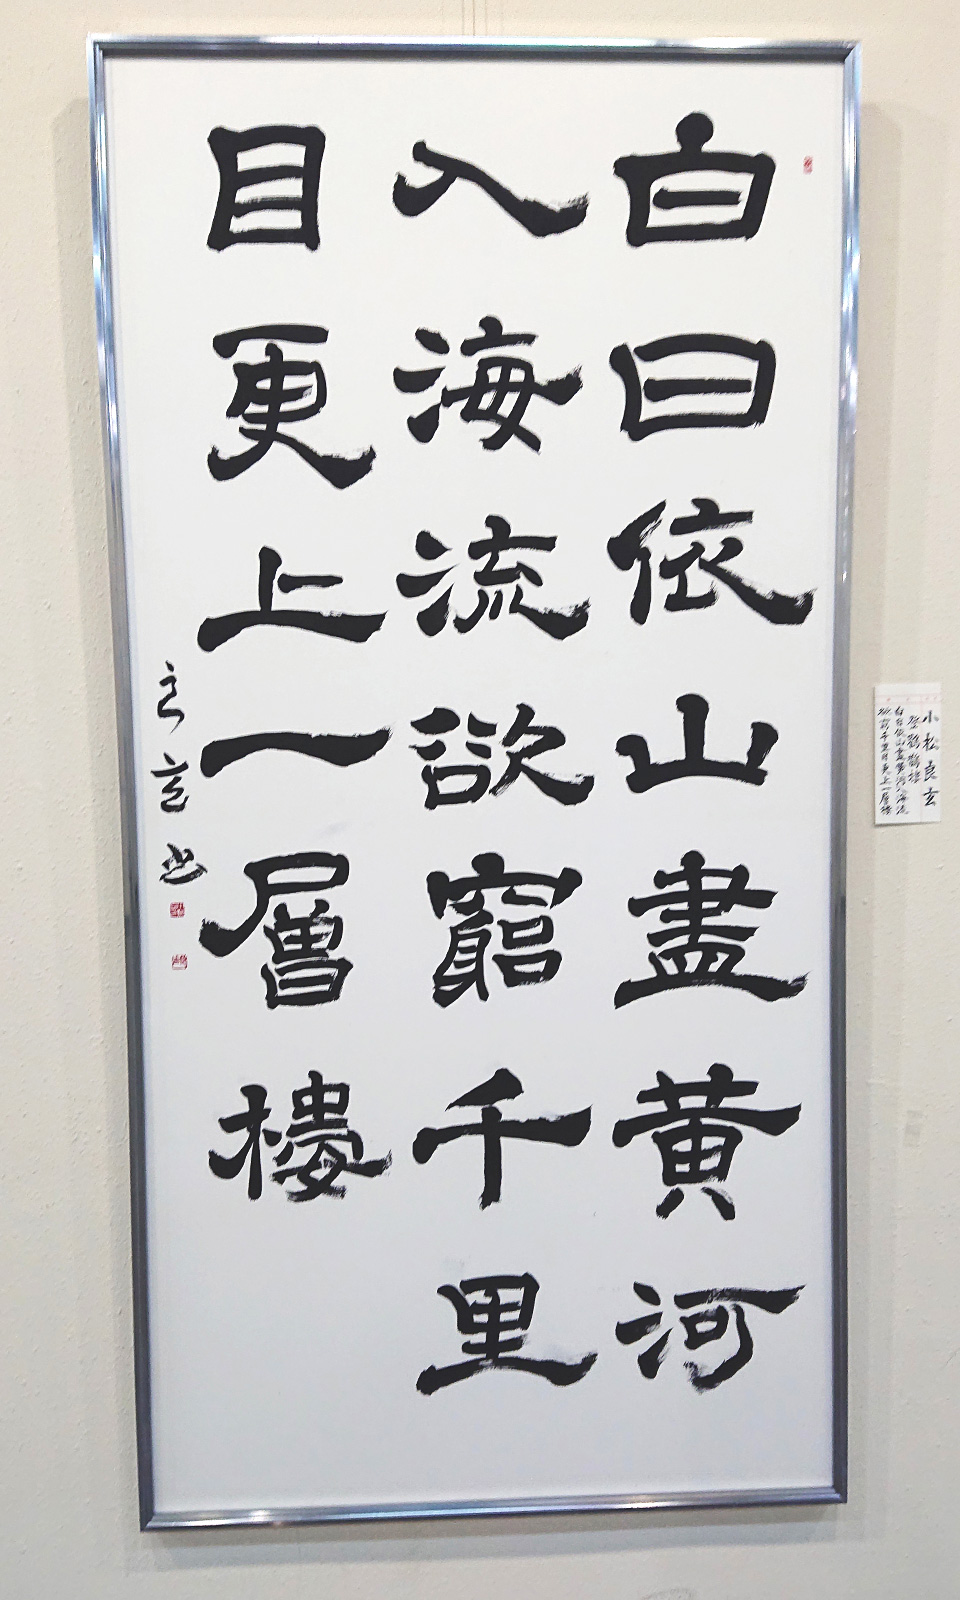 白日依山盡黃河
入海流欲窮千里
目更上一層樓
良玄書
小松良玄
登鸛鵲樓
白日依山盡黃河入海流
欲窮千里目更上一層樓